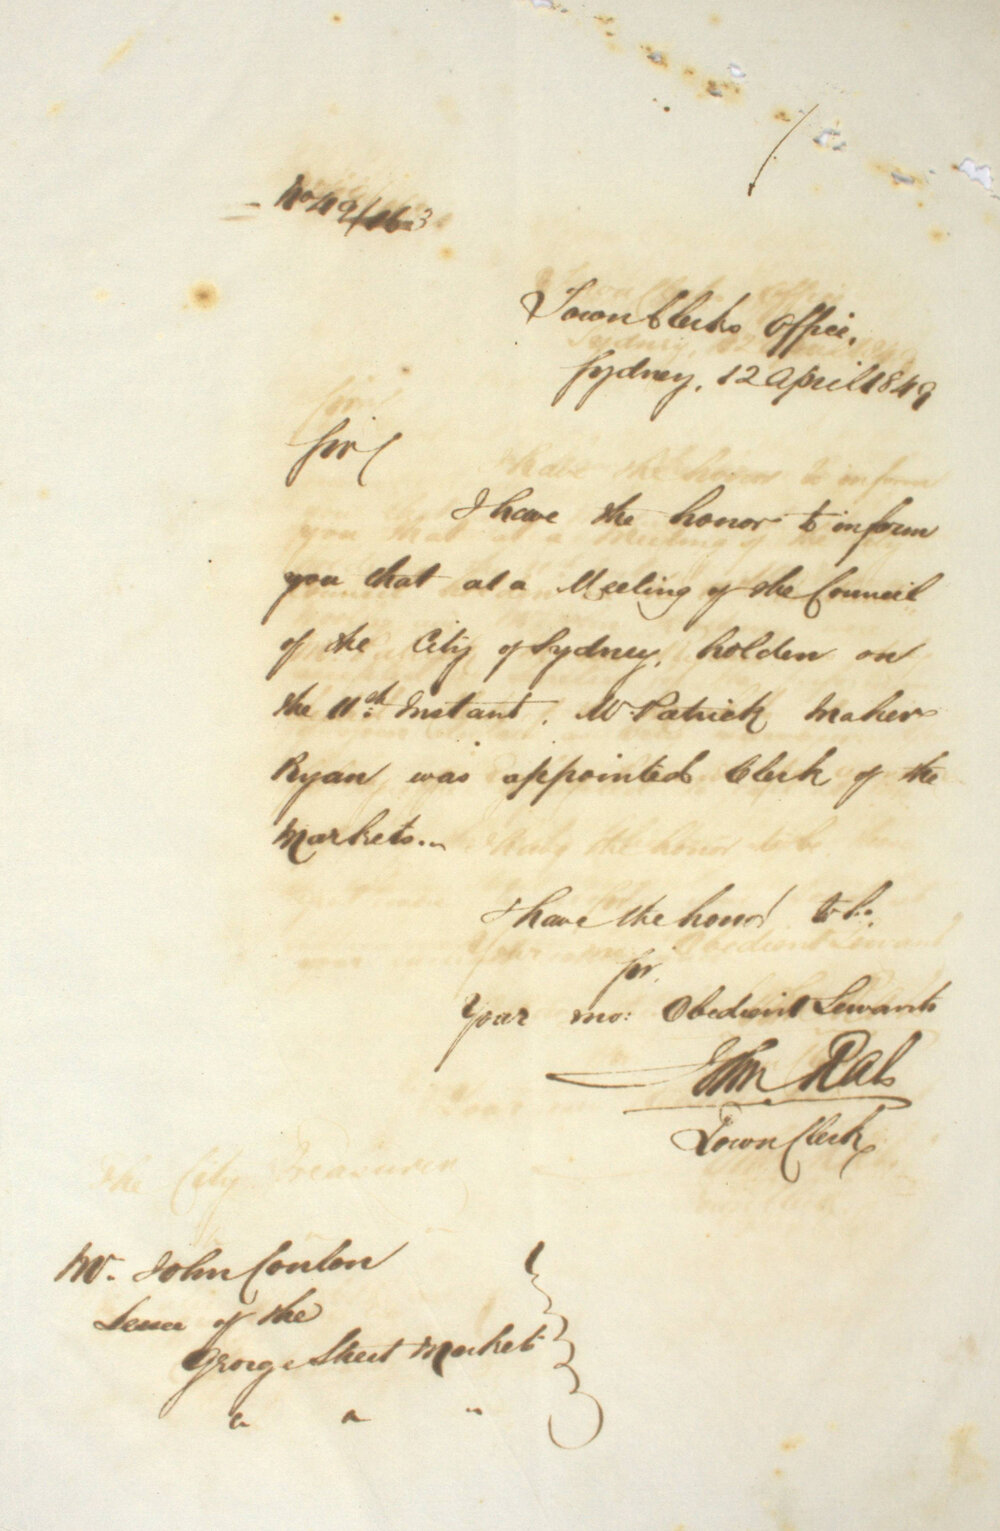 No 49/163
Town Clerks Office,
Sydney, 12 April 1849
Sir
I have the honor to inform
you that at a Meeting of the Council
of the City of Sydney, holden on
the 11th Instant, Mr Patrick Maher
Ryan was appointed Clerk of the
Markets..
I have the honor to be.
Sir.
Your mo: Obedient Servant
John Rae
Town Clerk
Mr. John Conlon
Lessee of the
George Street Market